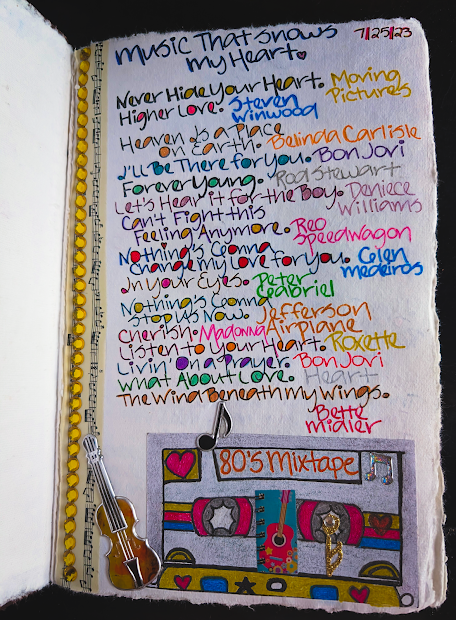 Music That Snows
my Heart.
7/25/23
Never Hide Your Heart. Moving Pictures
Higher Love. Steven Winwood
Heaven Is a Place
on Earth. Belinda Carlisle
I'll Be There for You. Bon Jovi
Forever Young. Rod Stewart
Let's Hear it for the Boy. Deniece Williams
Can't Fight this
Feeling Anymore. Reo Speedwagon
Nothing's Gonna
Change my Love for You. Glen medeiros
In Your Eyes. Peter Gabriel
Nothing's Gonna
Stop Us Now. Jefferson Airplane
Cherish. Madonna
Listen to Your Heart. Roxette
Livin' On a Prayer. Bon Jovi
What About Love. Heart
The Wind Beneath My Wings.
Bette Midler
80's Mixtape